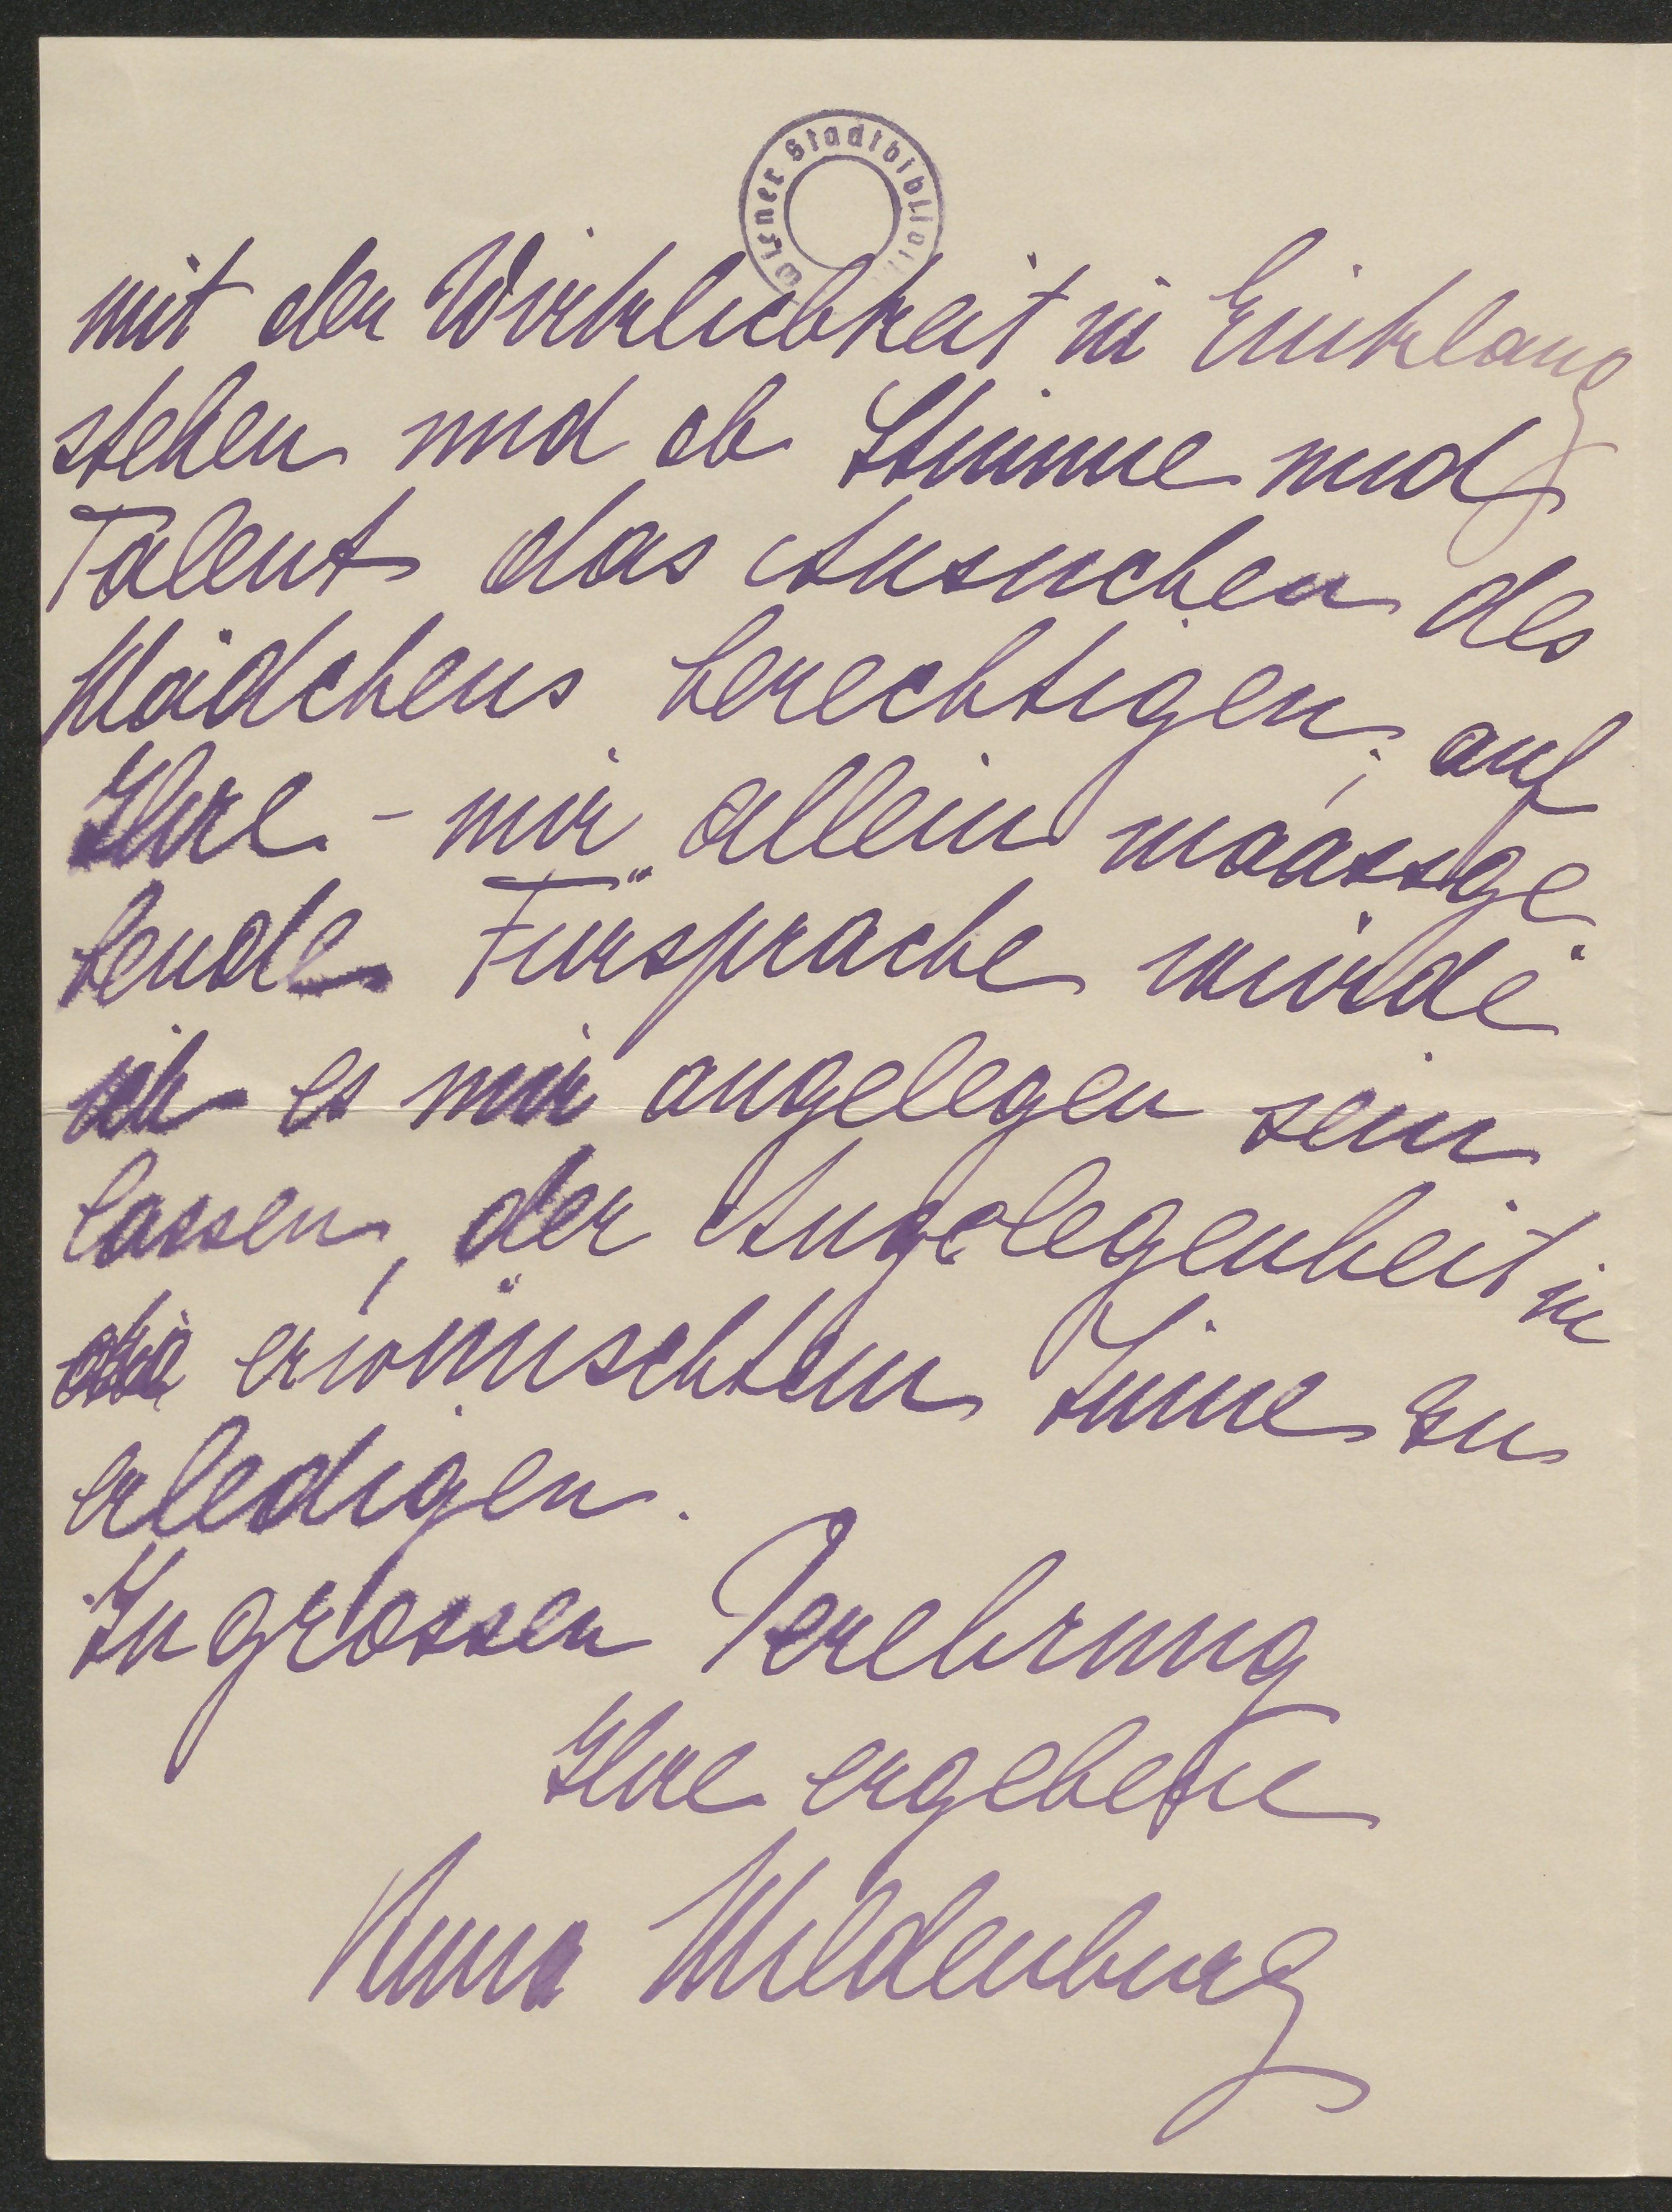 Wiener Stadtbibliot
mit der Wirklichkeit in Einklang
stehen und ob Stimme und
Talent das Ansuchen des
Mädchens berechtigen; auf
Ihre - mir allein maassge
bende Fürsprache würde
ich es mir angelegen sein
lassen, der Angelegenheit in
erwünschtem Sinne zu
erledigen.
In grossen Verehrung
Ihre ergebene
Anna Mildenburg